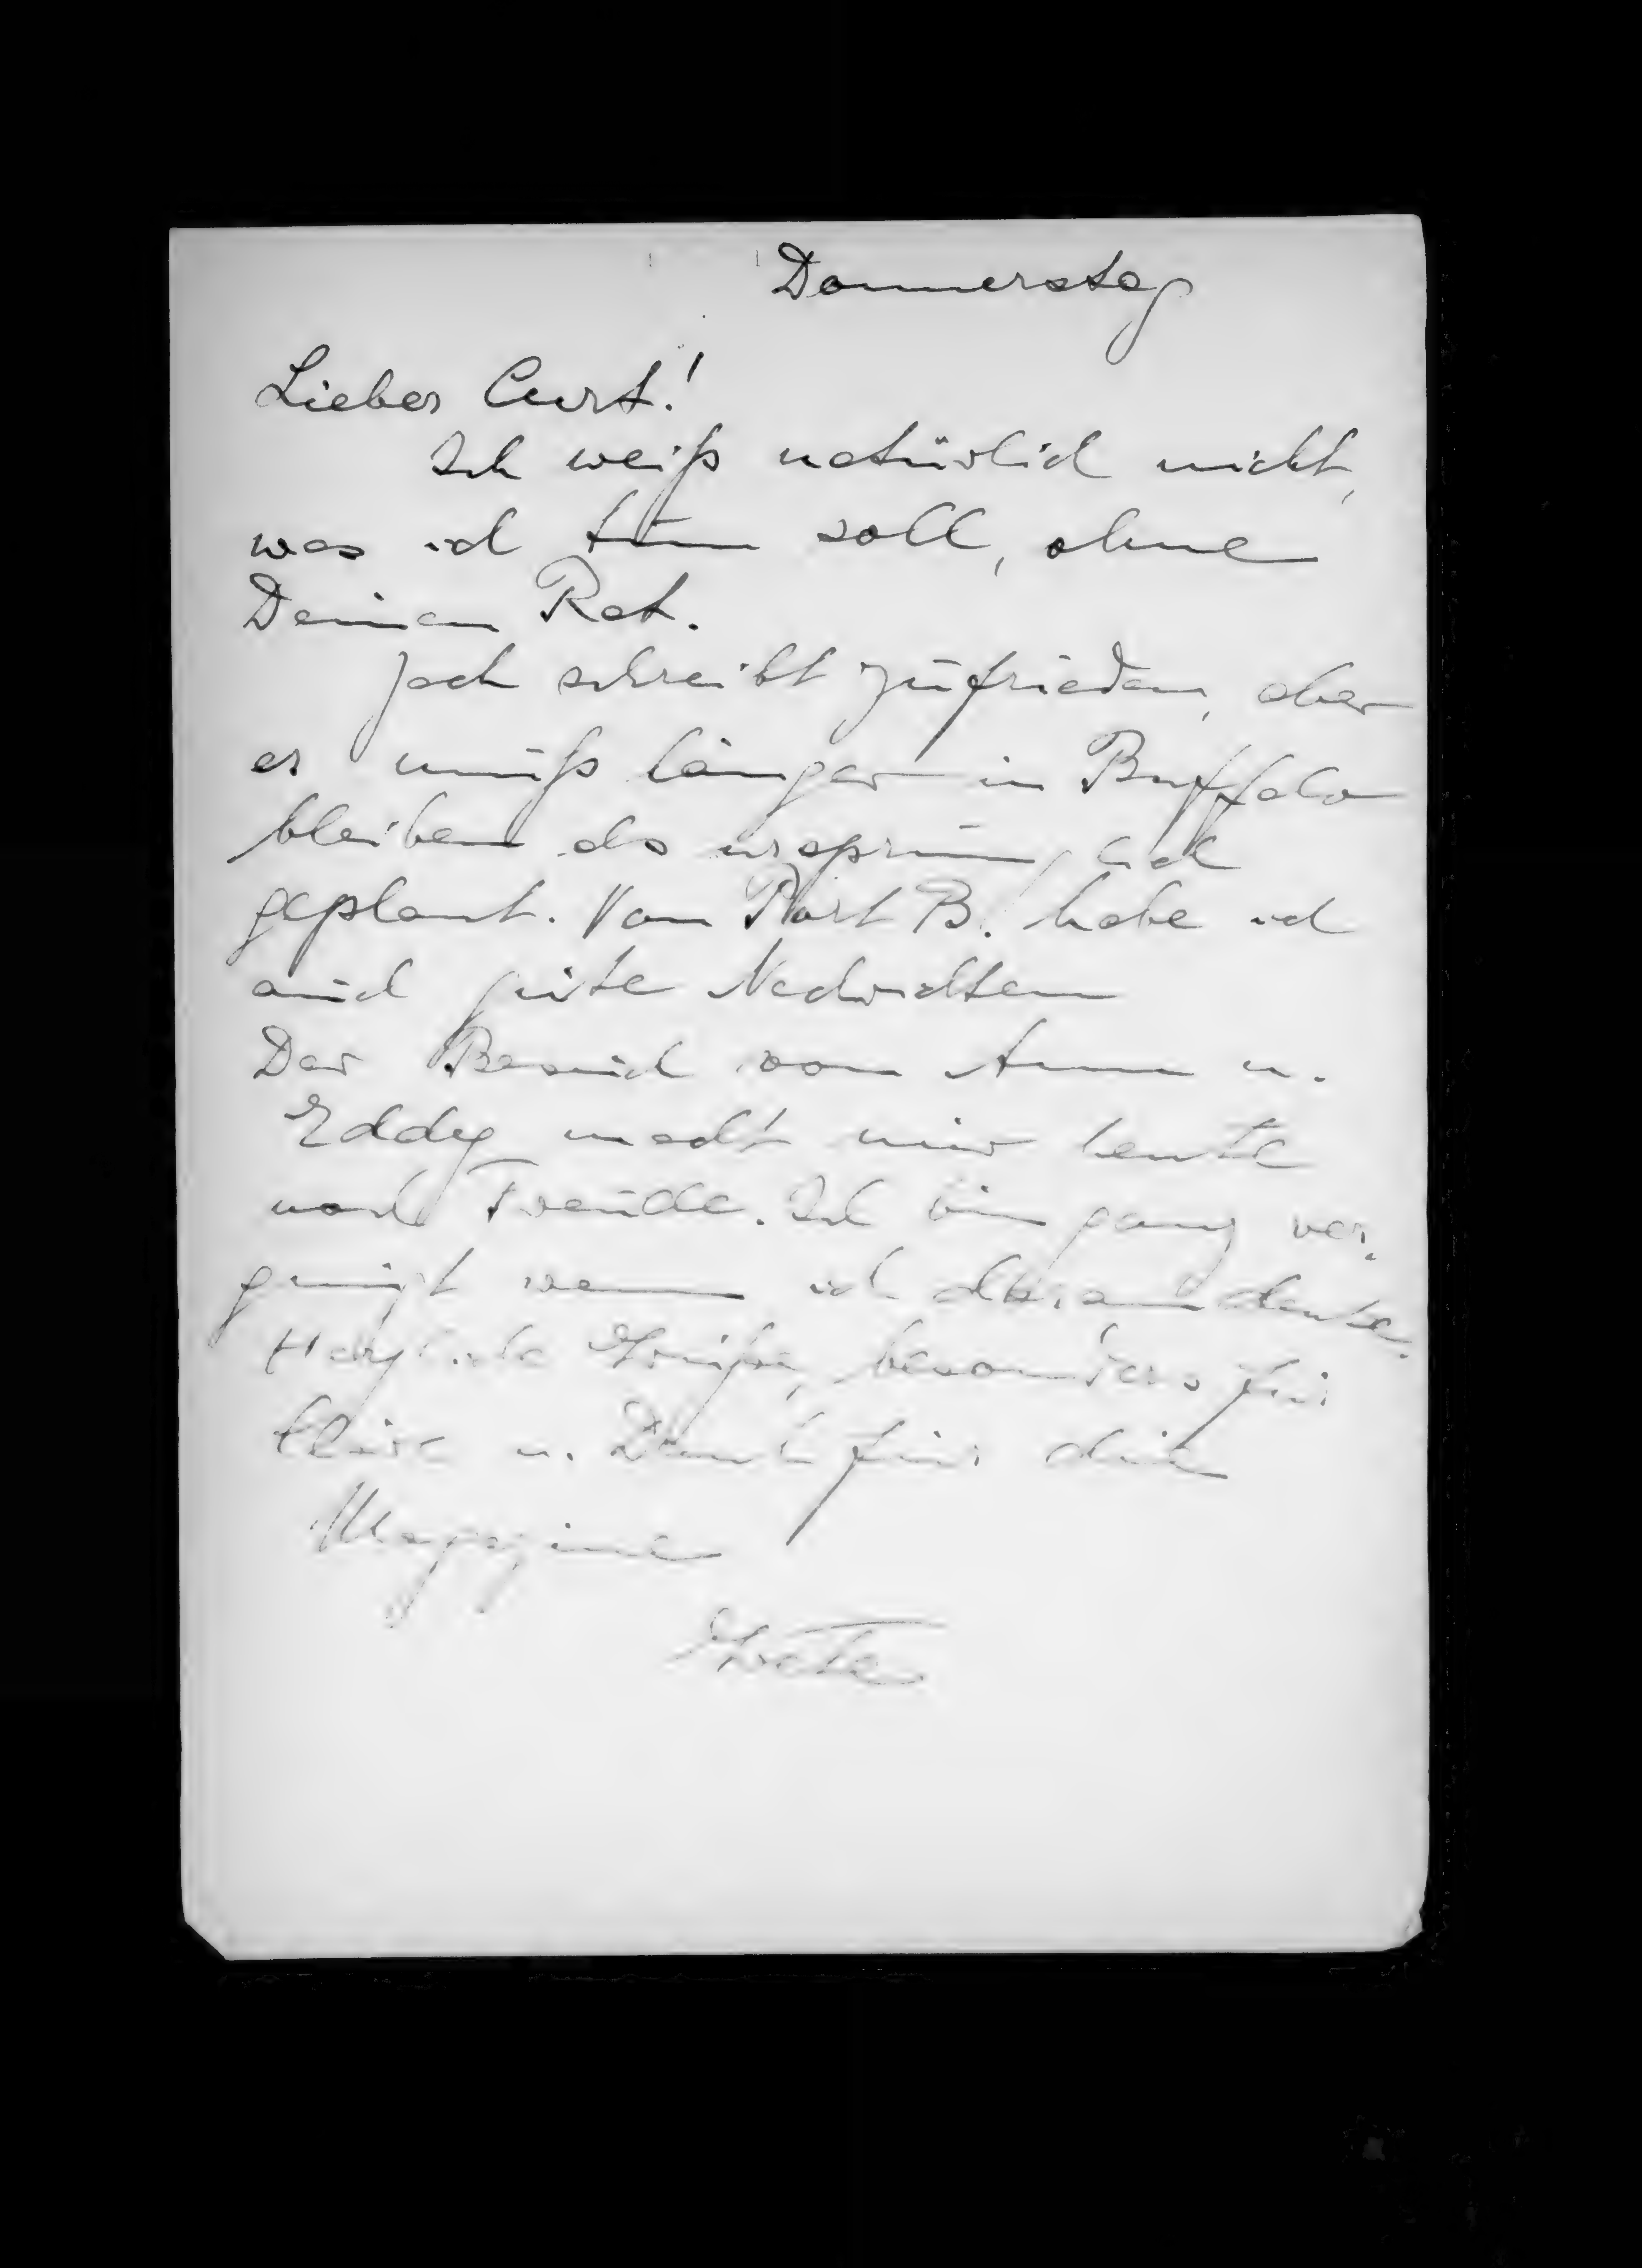 Donnerstag
Lieber Curt!
Ich weiß natürlich nicht,
was ich tun soll, ohne
Deinen Rat.
Jack schreibt zufrieden, aber
er muß länger in Buffalo
bleiben als ursprünglich
geplant. Von Port B. habe ich
auch gute Nachrichten
Der Besuch von Ann u.
Eddy macht mir heute
noch Freude. Ich bin ganz ver-
gnügt wenn ich daran denke.
Herzliche Grüße, besonders für
Claire u. Dank für die
Magazine
Grete